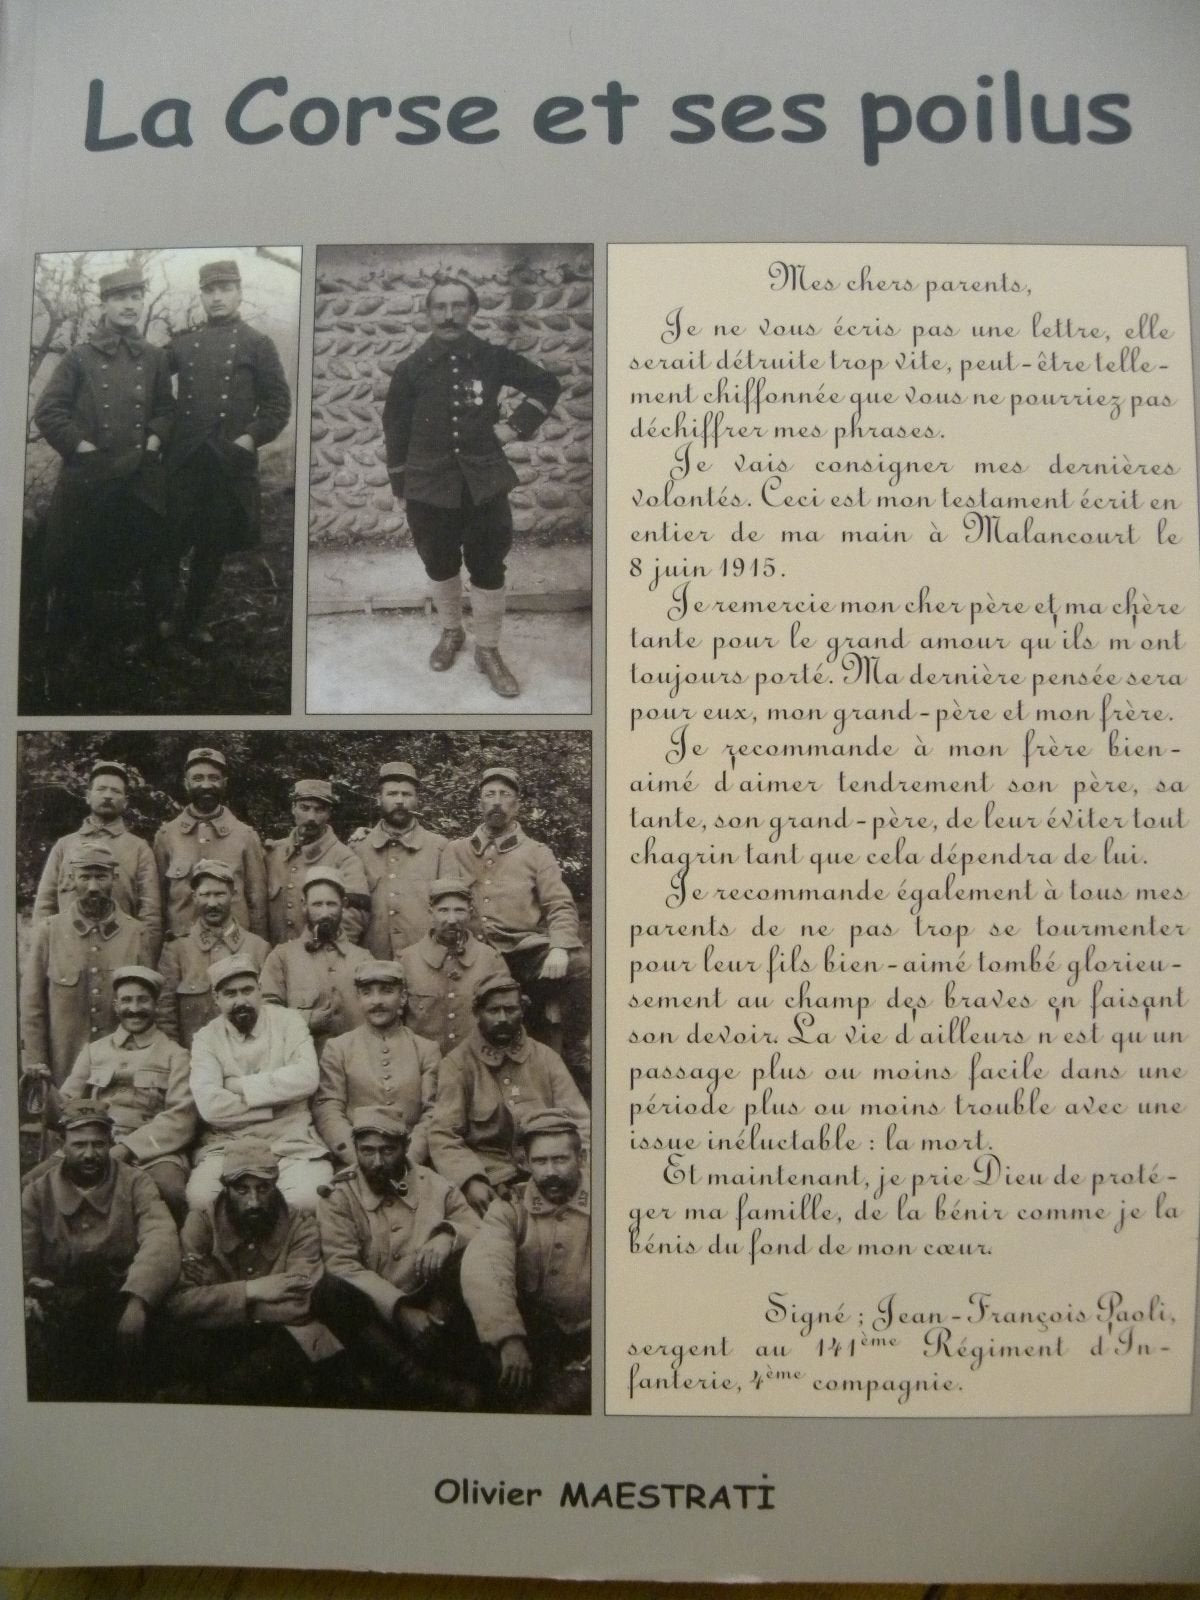 La Corse et ses poilus
Mes chers parents,
Je ne vous écris pas une lettre, elle
serait détruite trop vite, peut-être telle-
ment chiffonnée que vous ne pourriez pas
déchiffrer mes phrases.
Je vais consigner mes dernières
volontés. Ceci est mon testament écrit en
entier de ma main à Malancourt le
8 juin 1915.
Je remercie mon cher père et ma chère
tante pour le grand amour qu'ils m'ont
toujours porté. Ma dernière pensée sera
pour eux, mon grand-père et mon frère.
Je recommande à mon frère bien-
aimé d'aimer tendrement son père, sa
tante, son grand-père, de leur éviter tout
chagrin tant que cela dépendra de lui.
Je recommande également à tous mes
parents de ne pas trop se tourmenter
pour leur fils bien-aimé tombé glorieu-
sement au champ des braves en faisant
son devoir. La vie d'ailleurs n'est qu'un
passage plus ou moins facile dans une
période plus ou moins trouble avec une
issue inéluctable : la mort.
Et maintenant, je prie Dieu de proté-
ger ma famille, de la bénir comme je la
bénis du fond de mon cœur.
Signé ; Jean-François Paoli,
sergent au 141ème Régiment d'In-
fanterie, 4ème compagnie.
Olivier MAESTRATI